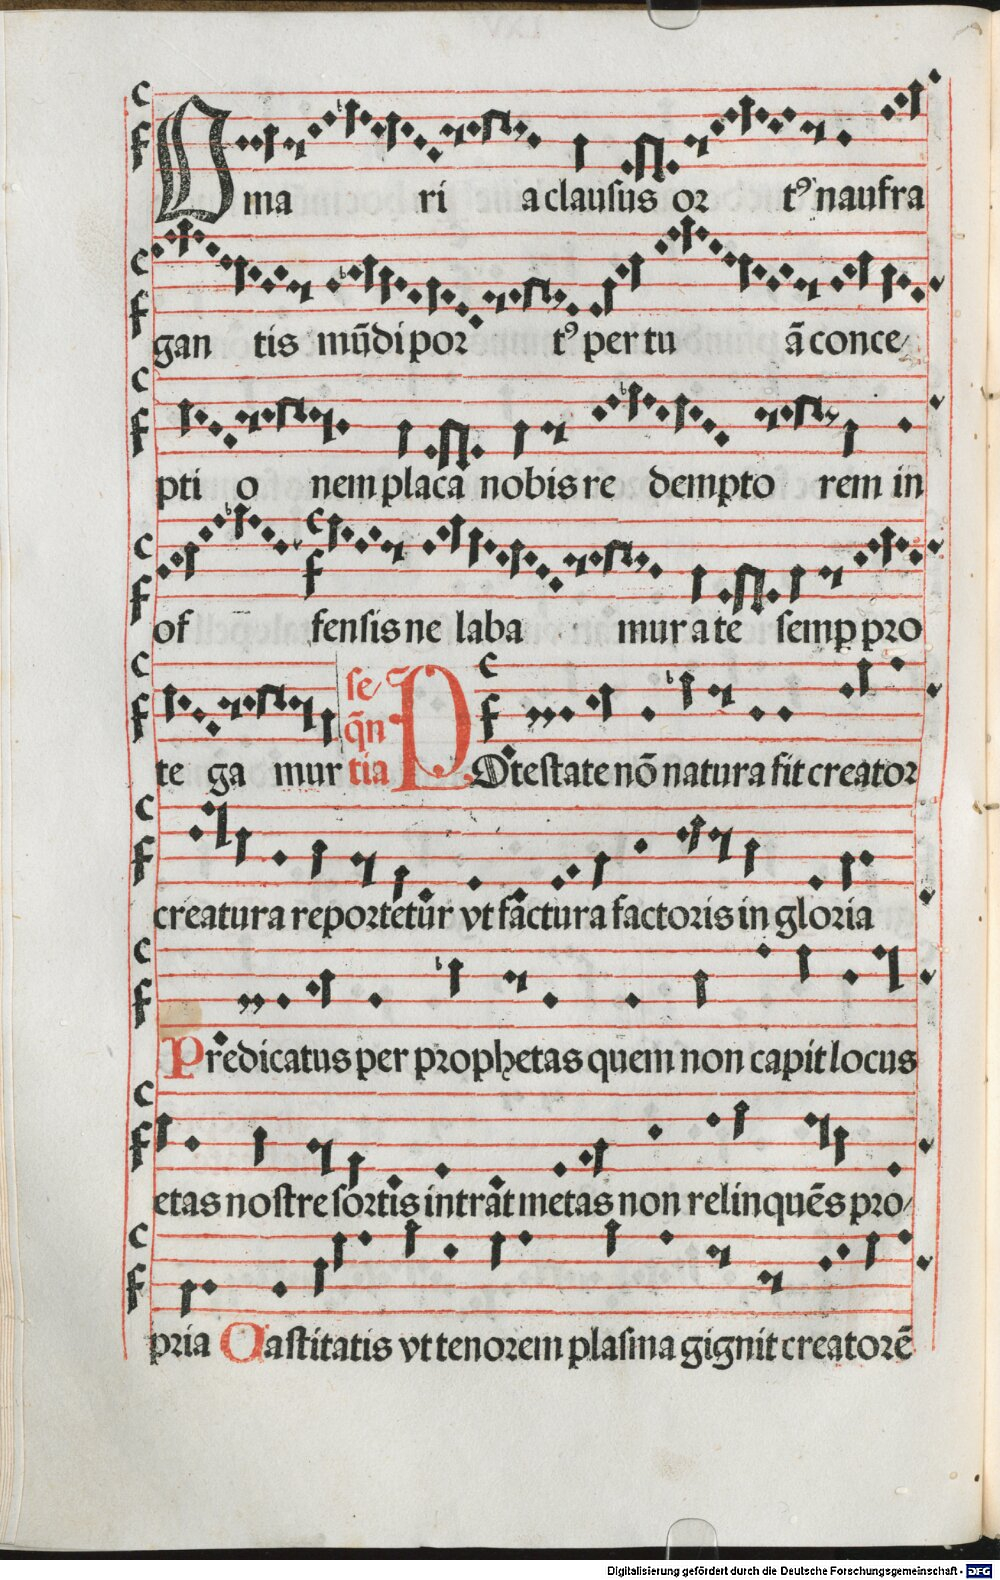 O ma ri a clausus or tꝰ naufra
gan tis mūdi por tꝰ per tu ā conce
pti o nem placa nobis re dempto rem in
of fensis ne laba mur a te semꝑ pro
te ga mur se q̄n tia POtestate nō natura fit creator
creatura reportetur vt factura factoris in gloria
Predicatus per prophetas quem non capit locus
etas nostre sortis intrat metas non relinquēs pro
pria Castitatis vt tenorem plasma gignit creatorē
Digitalisierung gefördert durch die Deutsche Forschungsgemeinschaft - DFG